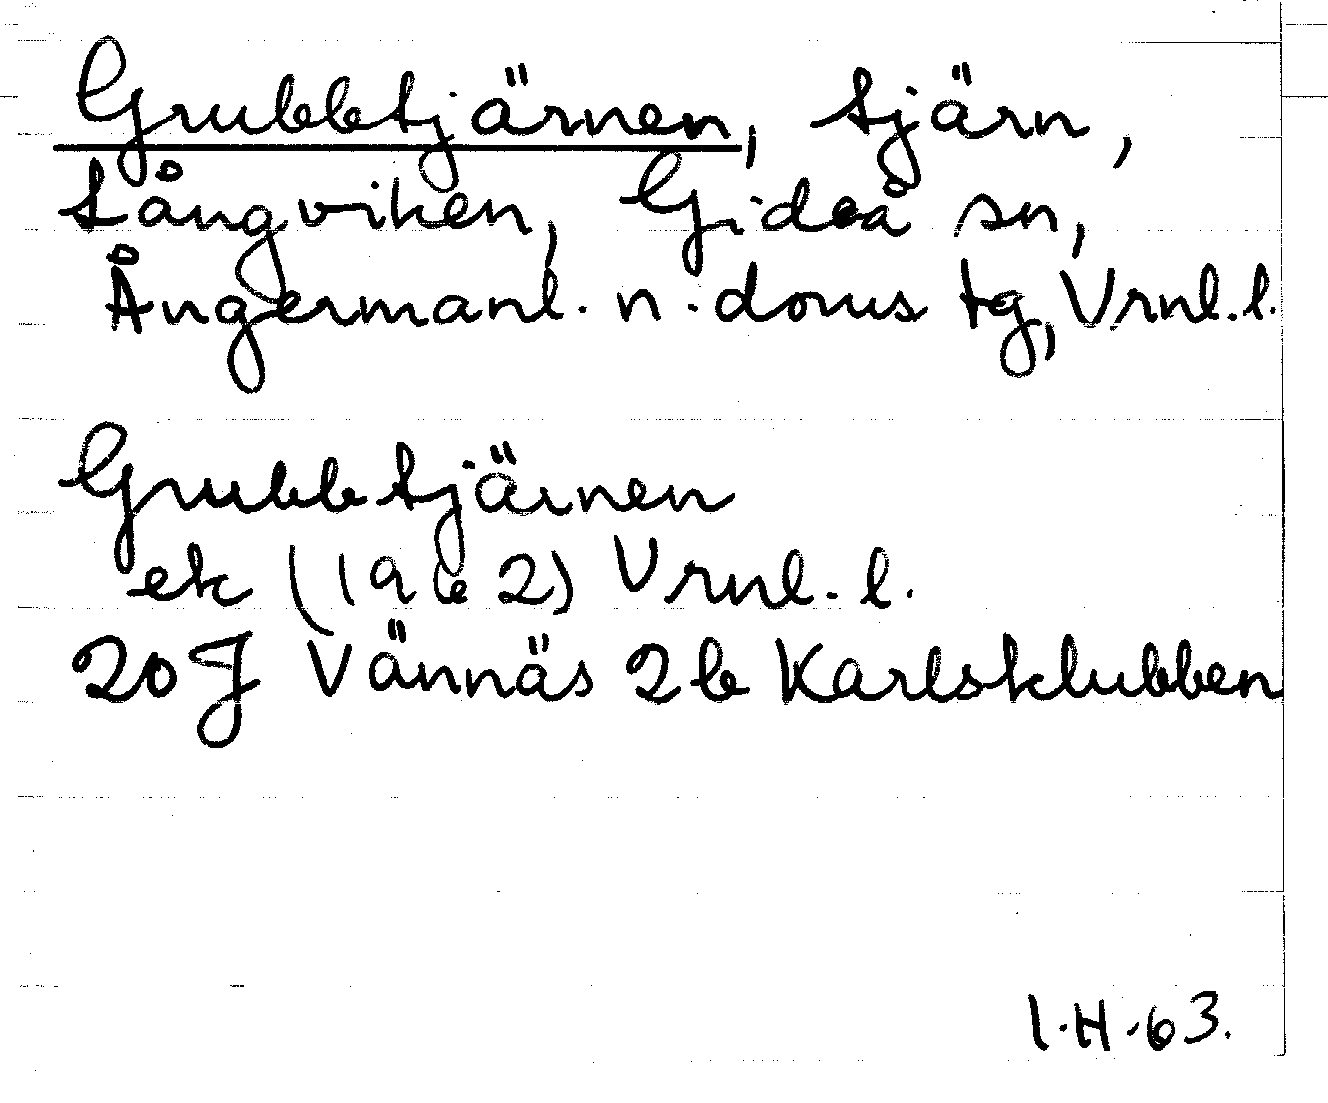 Grubbtjärnen, tjärn,
Långviken, Gideå sn,
Ångermanl. n. doms tg, Vrnl. l.
Grubbtjärnen
ek (1962) Vrnl. l.
20 J Vännäs 2 b Karlsklubben
I. H. 63.